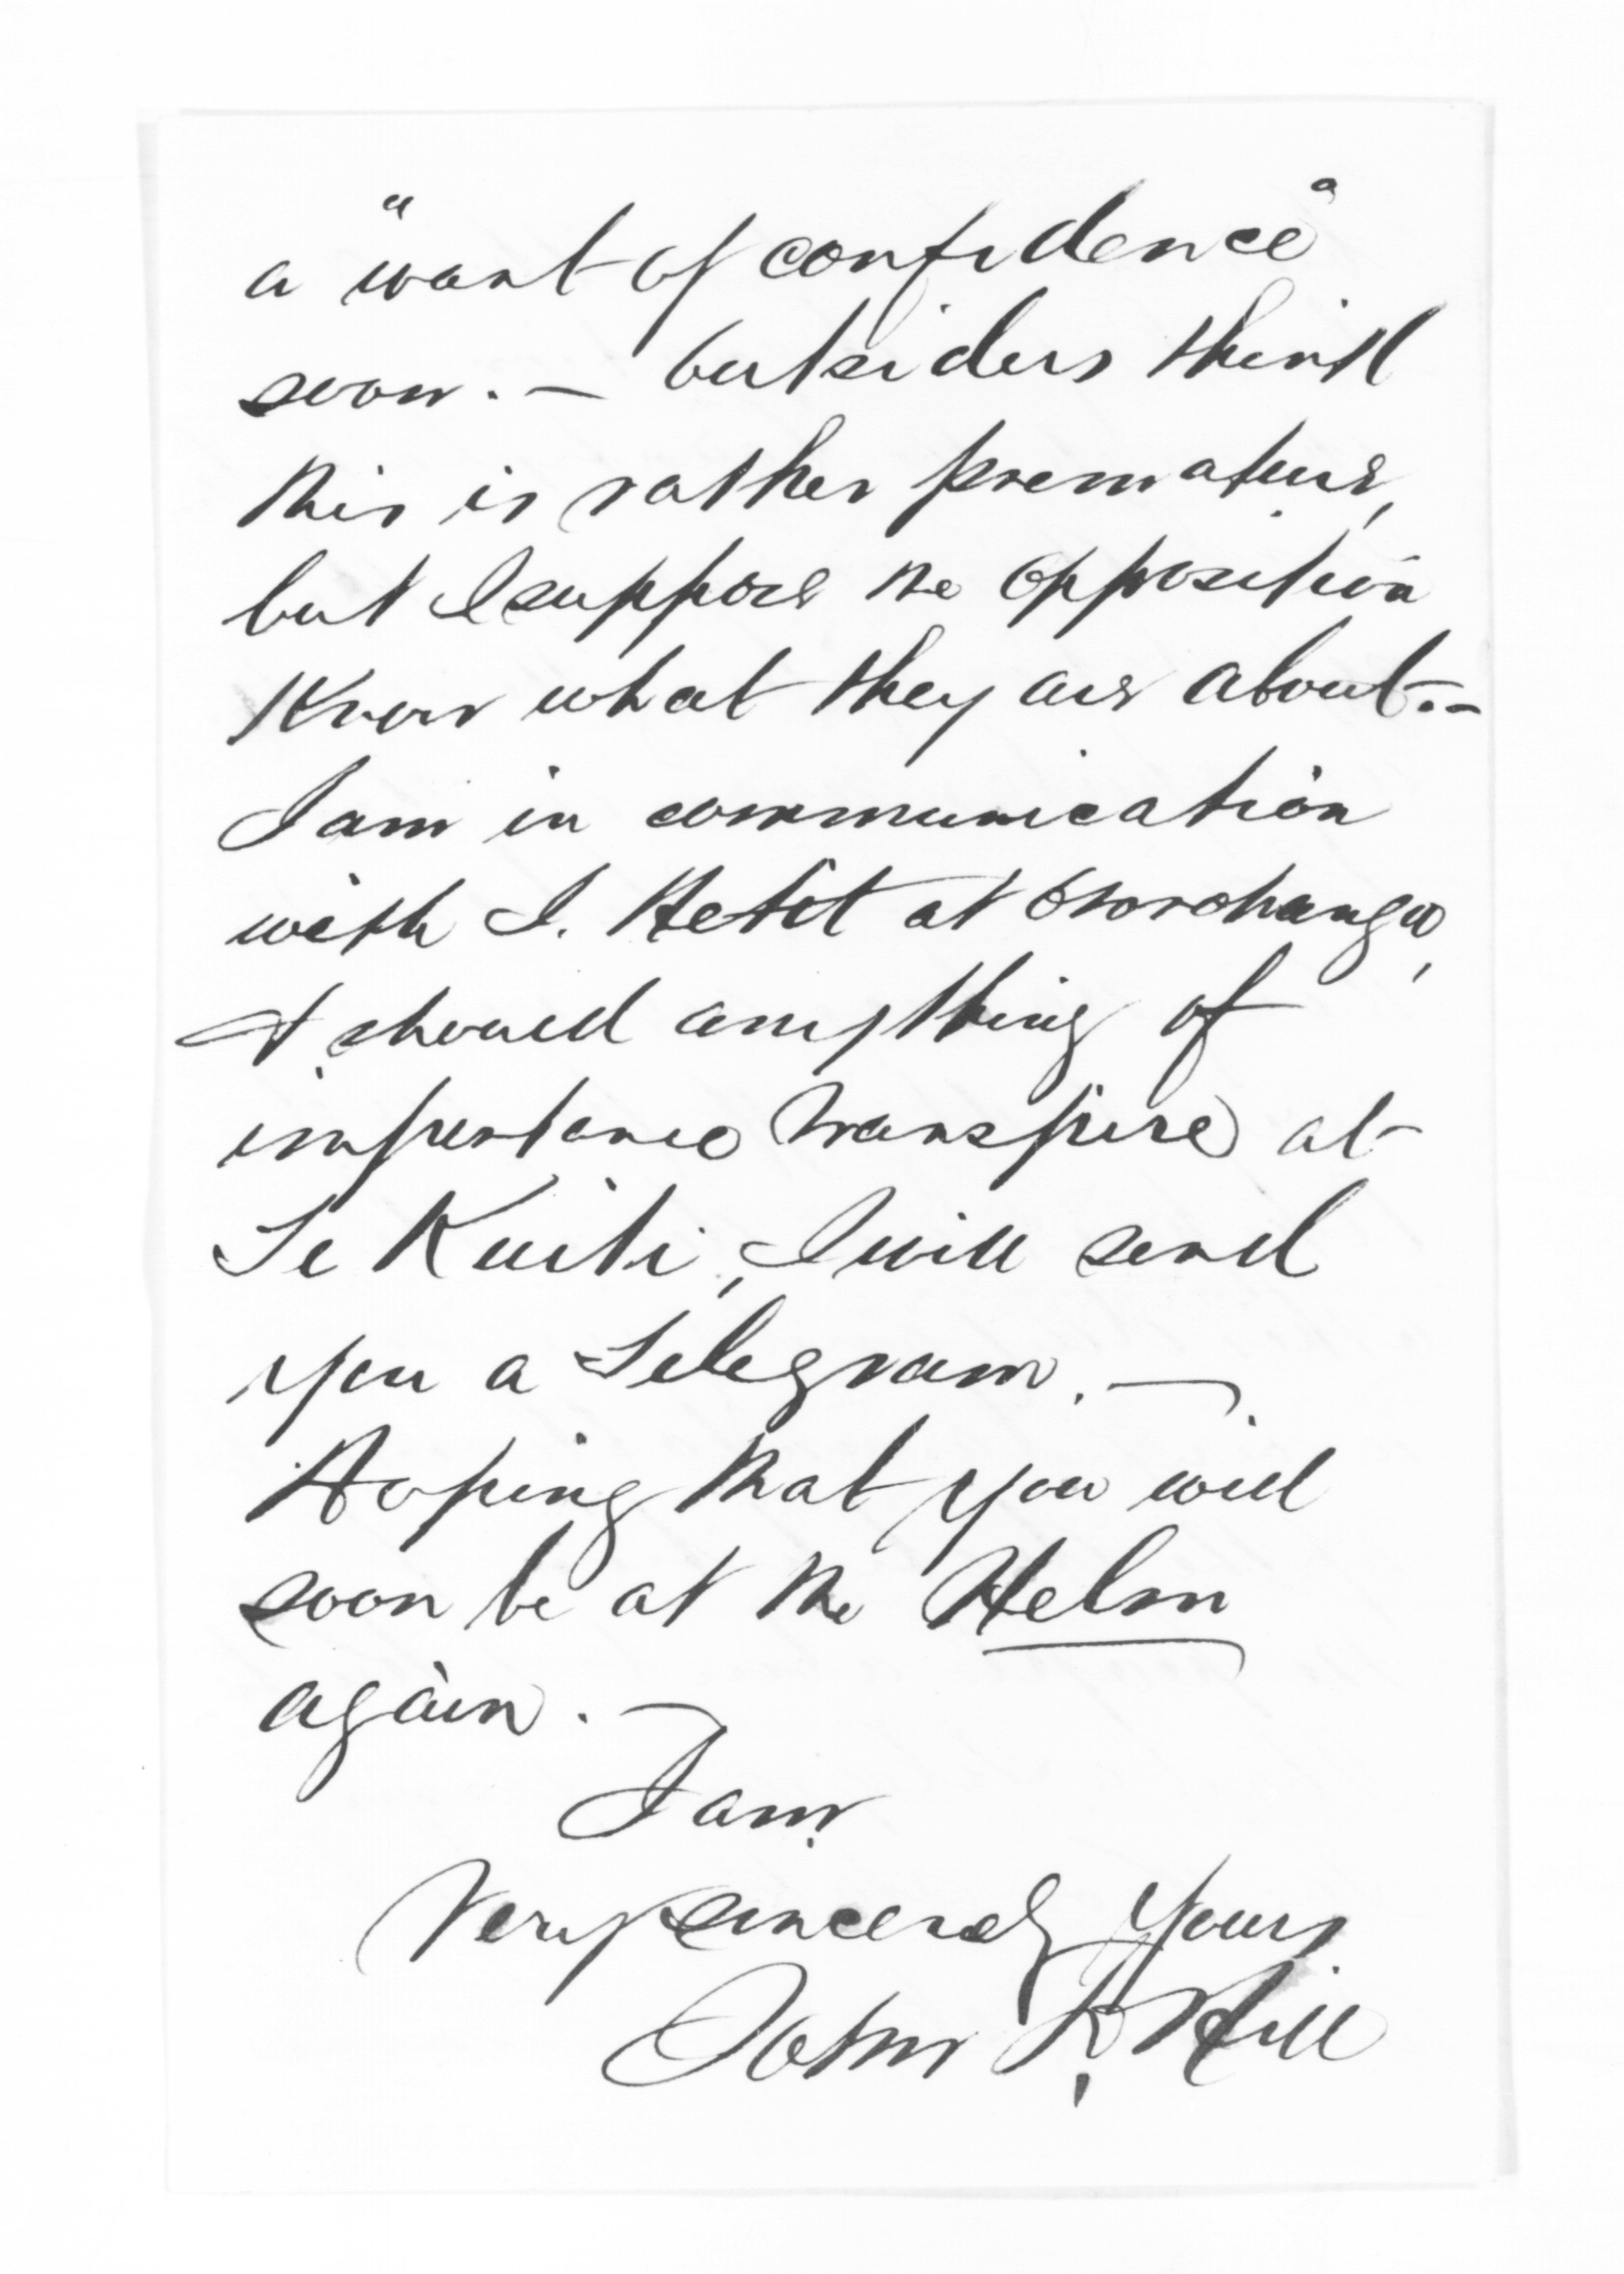 a "want of confidence"
soon. — Outsiders think
this is rather premature,
but I suppose the opposition
Know what they are about. —
I am in communication
with I. Hetit at Otorohanga,
& should anything of
importance transpire at
Te Kuiti, I will send
you a Telegram. —
Hoping that you will
soon be at the Helm
again. —
I am
Very sincerely yours
John Hill